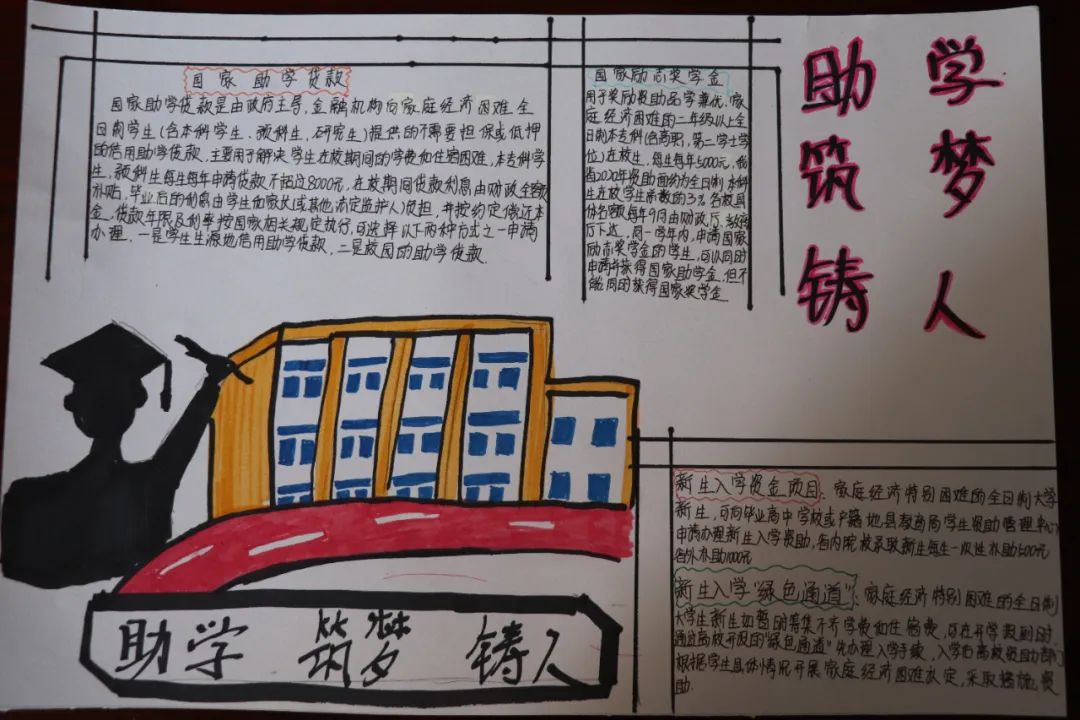 助学
筑梦
铸人
国家助学贷款
国家助学贷款是由政府主导,金融机构向家庭经济困难全
日制学生(含本科学生、预科生、研究生)提供的不需要担保或抵押
的信用助学贷款,主要用于解决学生在校期间的学费和住宿困难,本专科学
生,预科生每生每年申请贷款不超过8000元,在校期间贷款利息由财政全额
补贴,毕业后的利息由学生和家长(或其他法定监护人)负担,并按约定偿还本
金,贷款年限及利率按国家相关规定执行,可选择以下两种方式之一申请
办理,一是学生生源地信用助学贷款,二是校园的助学贷款
国家励志奖学金
用于奖励资助品学兼优、家
庭经济困难的二年级以上全
日制本专科(含高职,第二学士学
位)在校生,每生每年5000元,我
省2020年资助面约为全日制本科
生在校学生总数的3%各校具
体名额每年9月由财政厅、教育
厅下达,同一学年内,申请国家
励志奖学金的学生,可以同时
申请并获得国家助学金,但不
能同时获得国家奖学金
新生入学资金项目:家庭经济特别困难的全日制大学
新生,可向毕业高中学校或户籍地县教育局学生资助管理中心
申请办理新生入学资助,省内院校录取新生每生一次性补助500元
省外补助1000元
新生入学“绿色通道”:家庭经济特别困难的全日制
大学生新生如暂时筹集不齐学费和住宿费,可在开学报到时
通过高校开设的“绿色通道”先办理入学手续,入学后高校资助部门
根据学生具体情况开展家庭经济困难认定,采取措施资
助
助学 筑梦 铸人